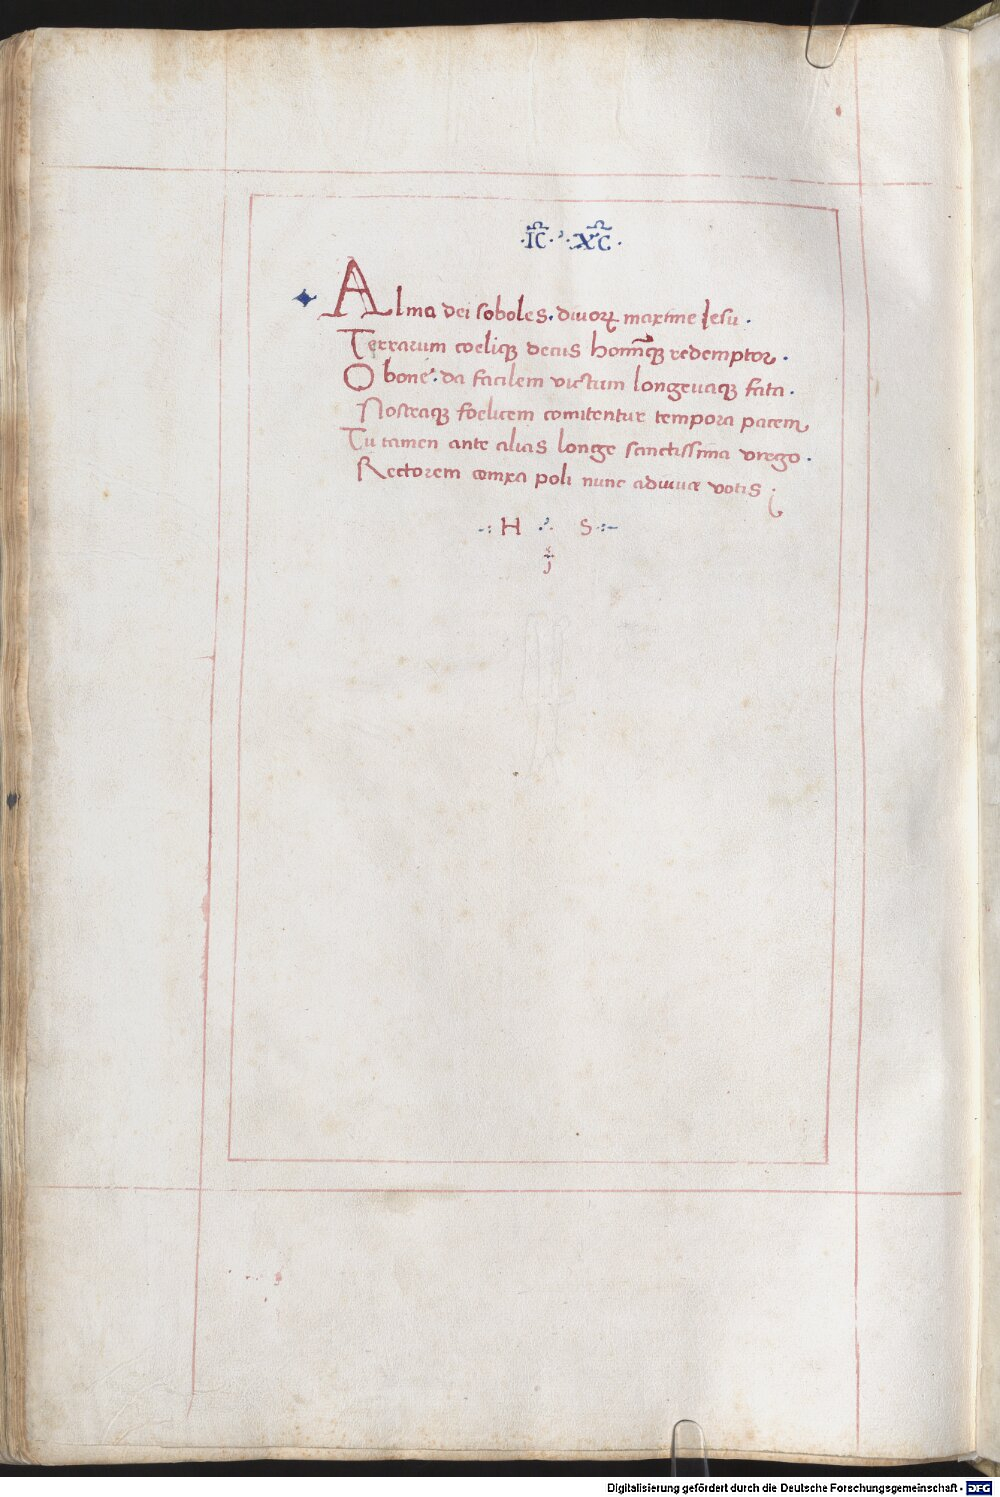 ·IC· ·XC·
Alma dei soboles. diuorꝝ maxime Iesu.
Terrarum coeliqꝫ decus homĩcqꝫ redemptor.
O bone. da facilem victum longeuaqꝫ fata.
Nostraqꝫ foelicem comitentur tempora pacem
Tu tamen ante alias longe sanctissima virgo.
Rectorem poli nunc adiuuæ votis
H S
Digitalisierung gefördert durch die Deutsche Forschungsgemeinschaft - DFG